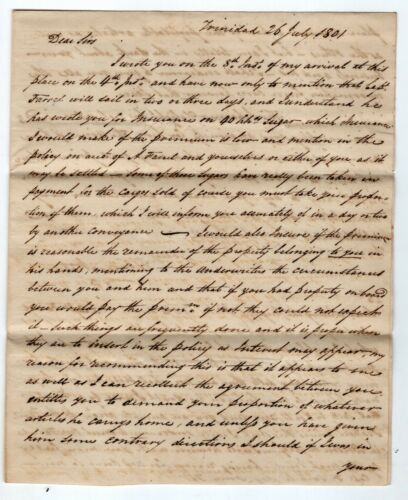 Trinidad 26 July 1801
Dear Sir
I wrote you on the 8th Inst. of my arrival at this
place on the 4th Inst. and have now only to mention that Capt.
Farrel will sail in two or three days, and I understand he
has wrote you for Insurance on 40 hhds Sugar which Insurance
I would make if the premium is low and mention in the
policy on acct of A Farrel and yourselves or either of you as it
may be settled — Some of these sugars have really been taken in
payment for the cargo sold of course you must take your propor-
tion of them, which I will inform you accurately of in a day or two
by another conveyance — I would also Insure if the premium
is reasonable the remainder of the property belonging to you in
his hands, mentioning to the Underwriters the circumstances
between you and him and that if you had property on board
you would pay the prem.m if not they could not expect
it — Such things are frequently done and it is proper when
they are to insert in the policy as Interest may appear — my
reason for recommending this is that it appears to me
as well as I can recollect the agreement between you
entitles you to demand your proportion of whatever
articles he carrys home, and unless you have given
him some contrary directions I should if I was in
your